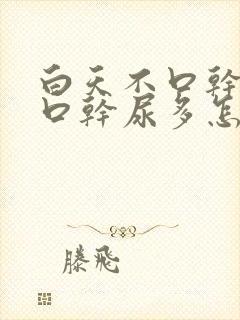 白天不口幹
口幹尿多怎
滕飛